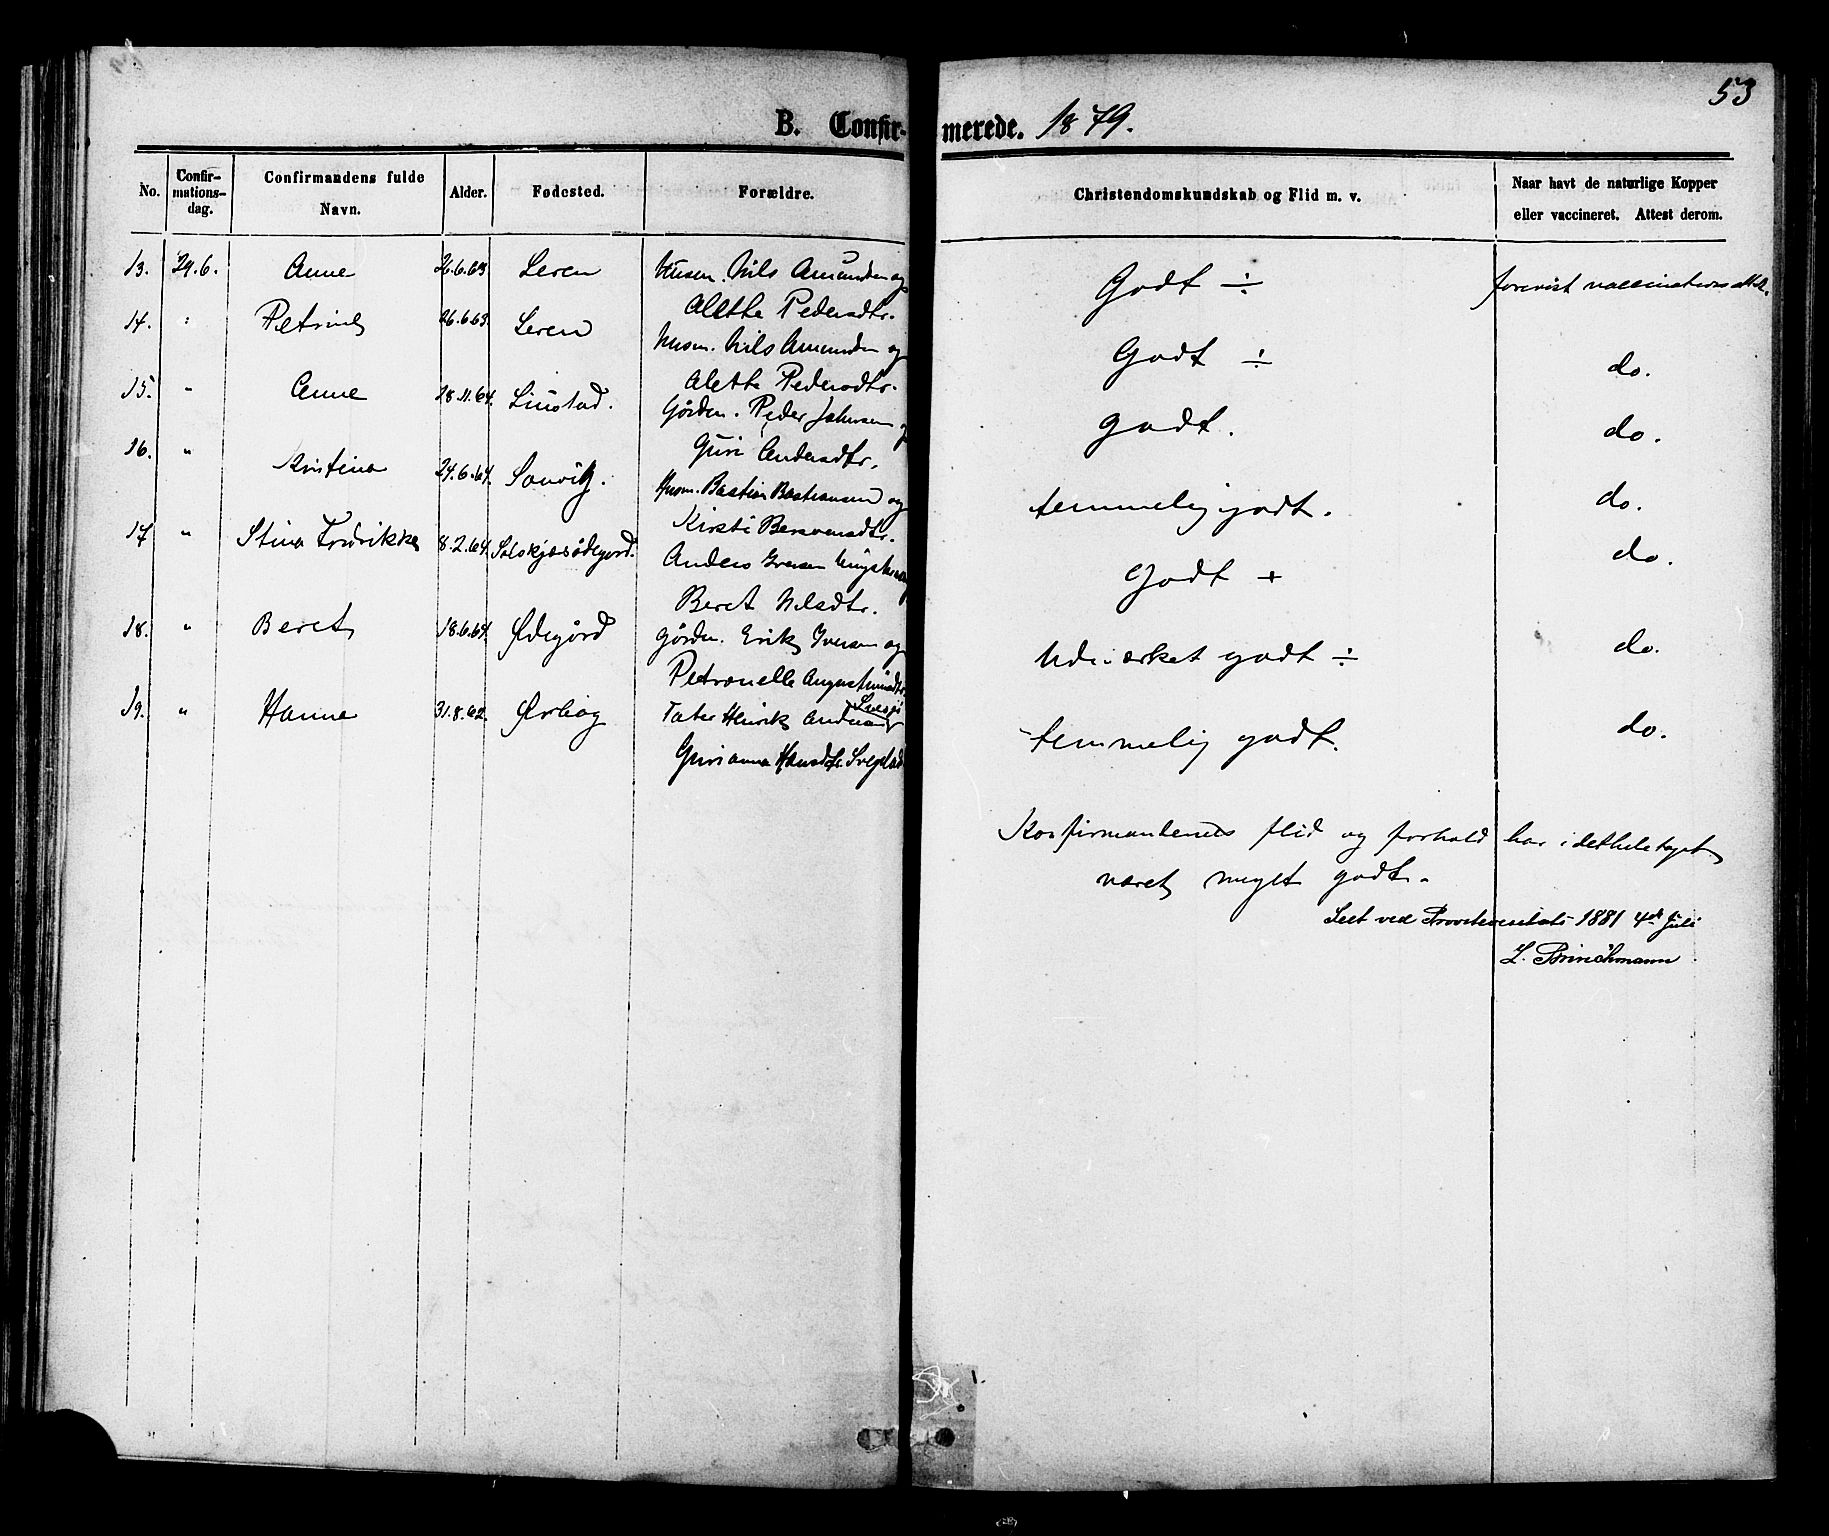 53
B. Confir- merede. 1879.
No. Confir-mations-dag. Confirmandens fulde Navn. Alder. Fødested. Forældre. Christendomskundskab og Flid m. v. Naar havt de naturlige Kopper eller vaccineret. Attest derom.
13. 29.6. Anne 26.6.63 Leren Husm. Nils Amundsen og Godt ÷ forevist vaccinationsattest.
Alette Pedersdtr.
14. " Petrine 26.6.63. Leren Husm. Nils Amundsen og Godt ÷ do.
Alette Pedersdtr.
15. " Anne 28.11.64. Linstad. Gårdm. Peder Johnsen og godt. do.
Guri Andersdtr.
16. " Kristina 24.6.64. Sanvig. Husm. Bastian Bastiansen og temmelig godt. do.
Kirsti Bersvensdtr.
17. " Stina Fredrikke 8.2.64. Solskjelsødegård. Anders Iversen og Godt + do.
Beret Nilsdtr.
18. " Beret 18.6.64. Ødegård Gårdm. Erik Iversen og Udmærket godt ÷ do.
Petronelle Augustinusdtr.
19. " Hanne 31.8.62. Ørbog Tater Henrik Andreas temmelig godt. do.
Gurianna Hansdtr.
Konfirmandenes flid og forhold har i dethele taget
været meget godt.
Seet ved Provstevisitats 1881 4de Juli
Z. Brinchmann